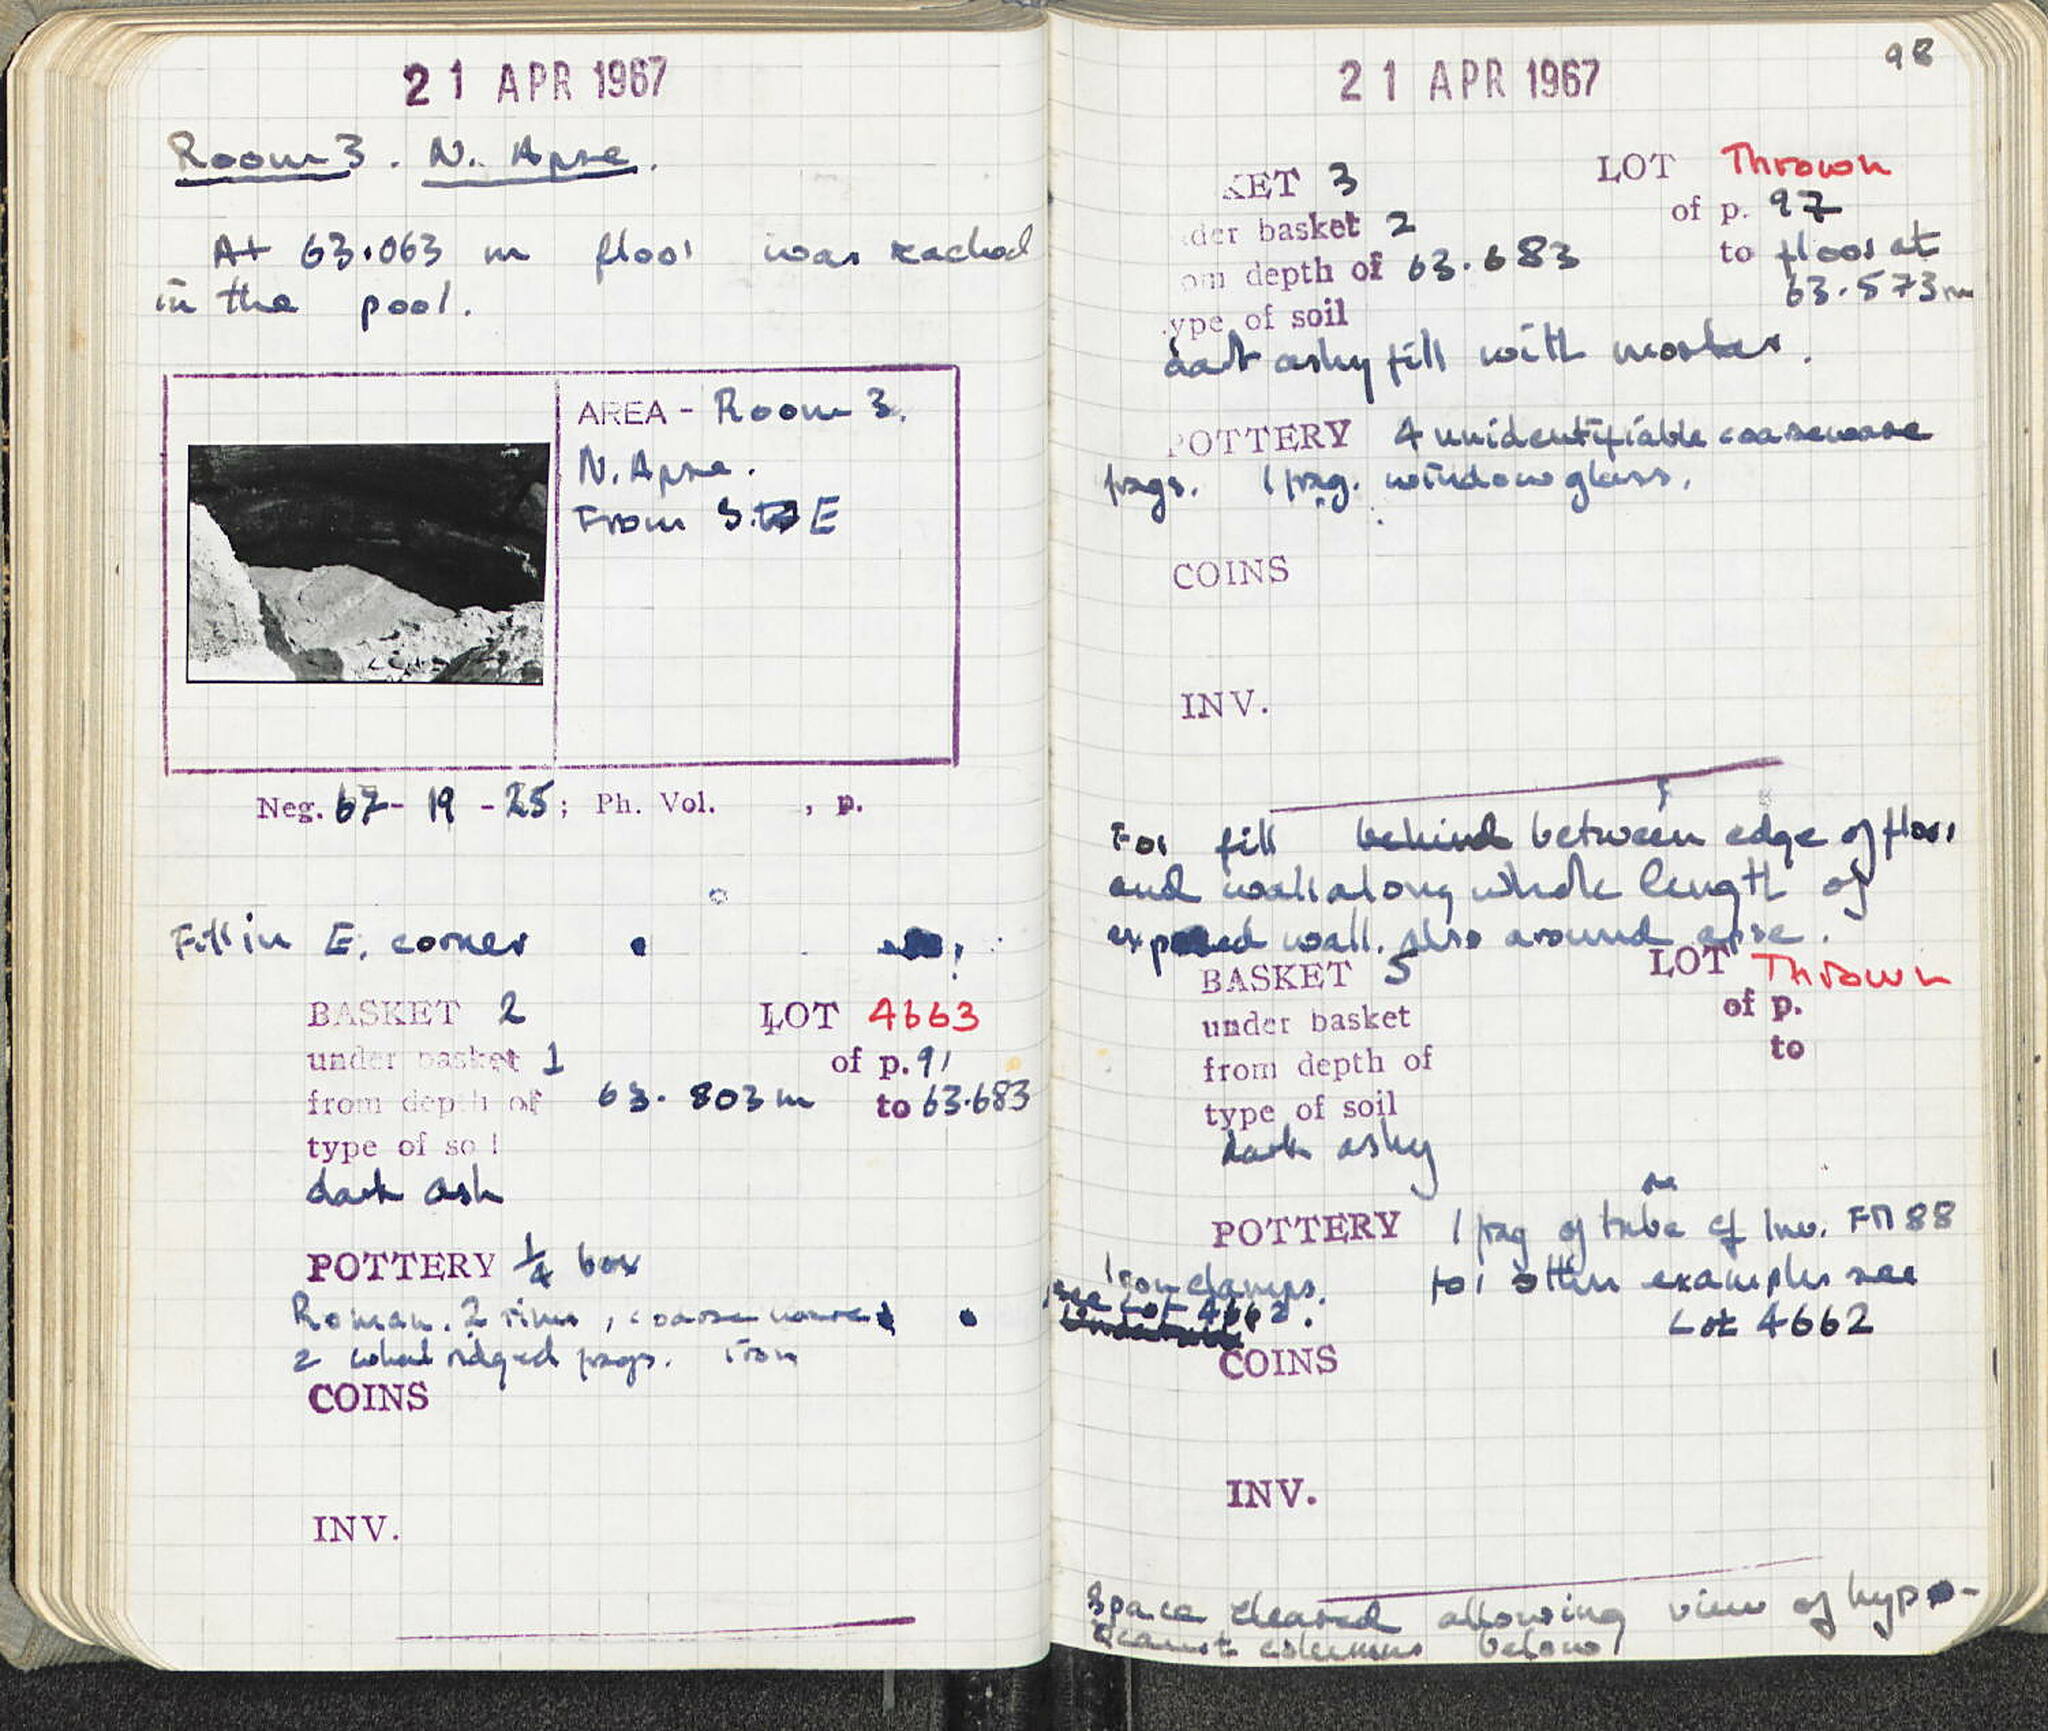 21 APR 1967
Room 3. N. Apse.
At 63.063 m floor was reached
in the pool.
AREA - Room 3.
N. Apse.
From S. E
Neg. 67 - 19 - 25; Ph. Vol. , p.
Fill in E. corner
BASKET 2 LOT 4663
under basket 1 of p. 91
from depth of 63.803 m to 63.683
type of soil
dark ash
POTTERY 1/4 box
Roman. 2 rims, coarse ware
2 wheel ridged frags. iron
COINS
INV.
98
21 APR 1967
KET 3 LOT Thrown
der basket 2 of p. 97
om depth of 63.683 to floor at
63.573 m
ype of soil
dark ashy fill with mortar.
POTTERY 4 unidentifiable coarseware
frags. 1 frag. window glass.
COINS
INV.
For fill behind between edge of floor
and wall along whole length of
exposed wall. Also around apse.
BASKET 5 LOT Thrown
under basket of p.
from depth of to
type of soil
dark ashy
POTTERY 1 frag of tube cf Inv. FM 88
Iron clamps. for other examples see
see Lot 4662. Lot 4662
COINS
INV.
Space cleared allowing view of hypo-
caust columns below